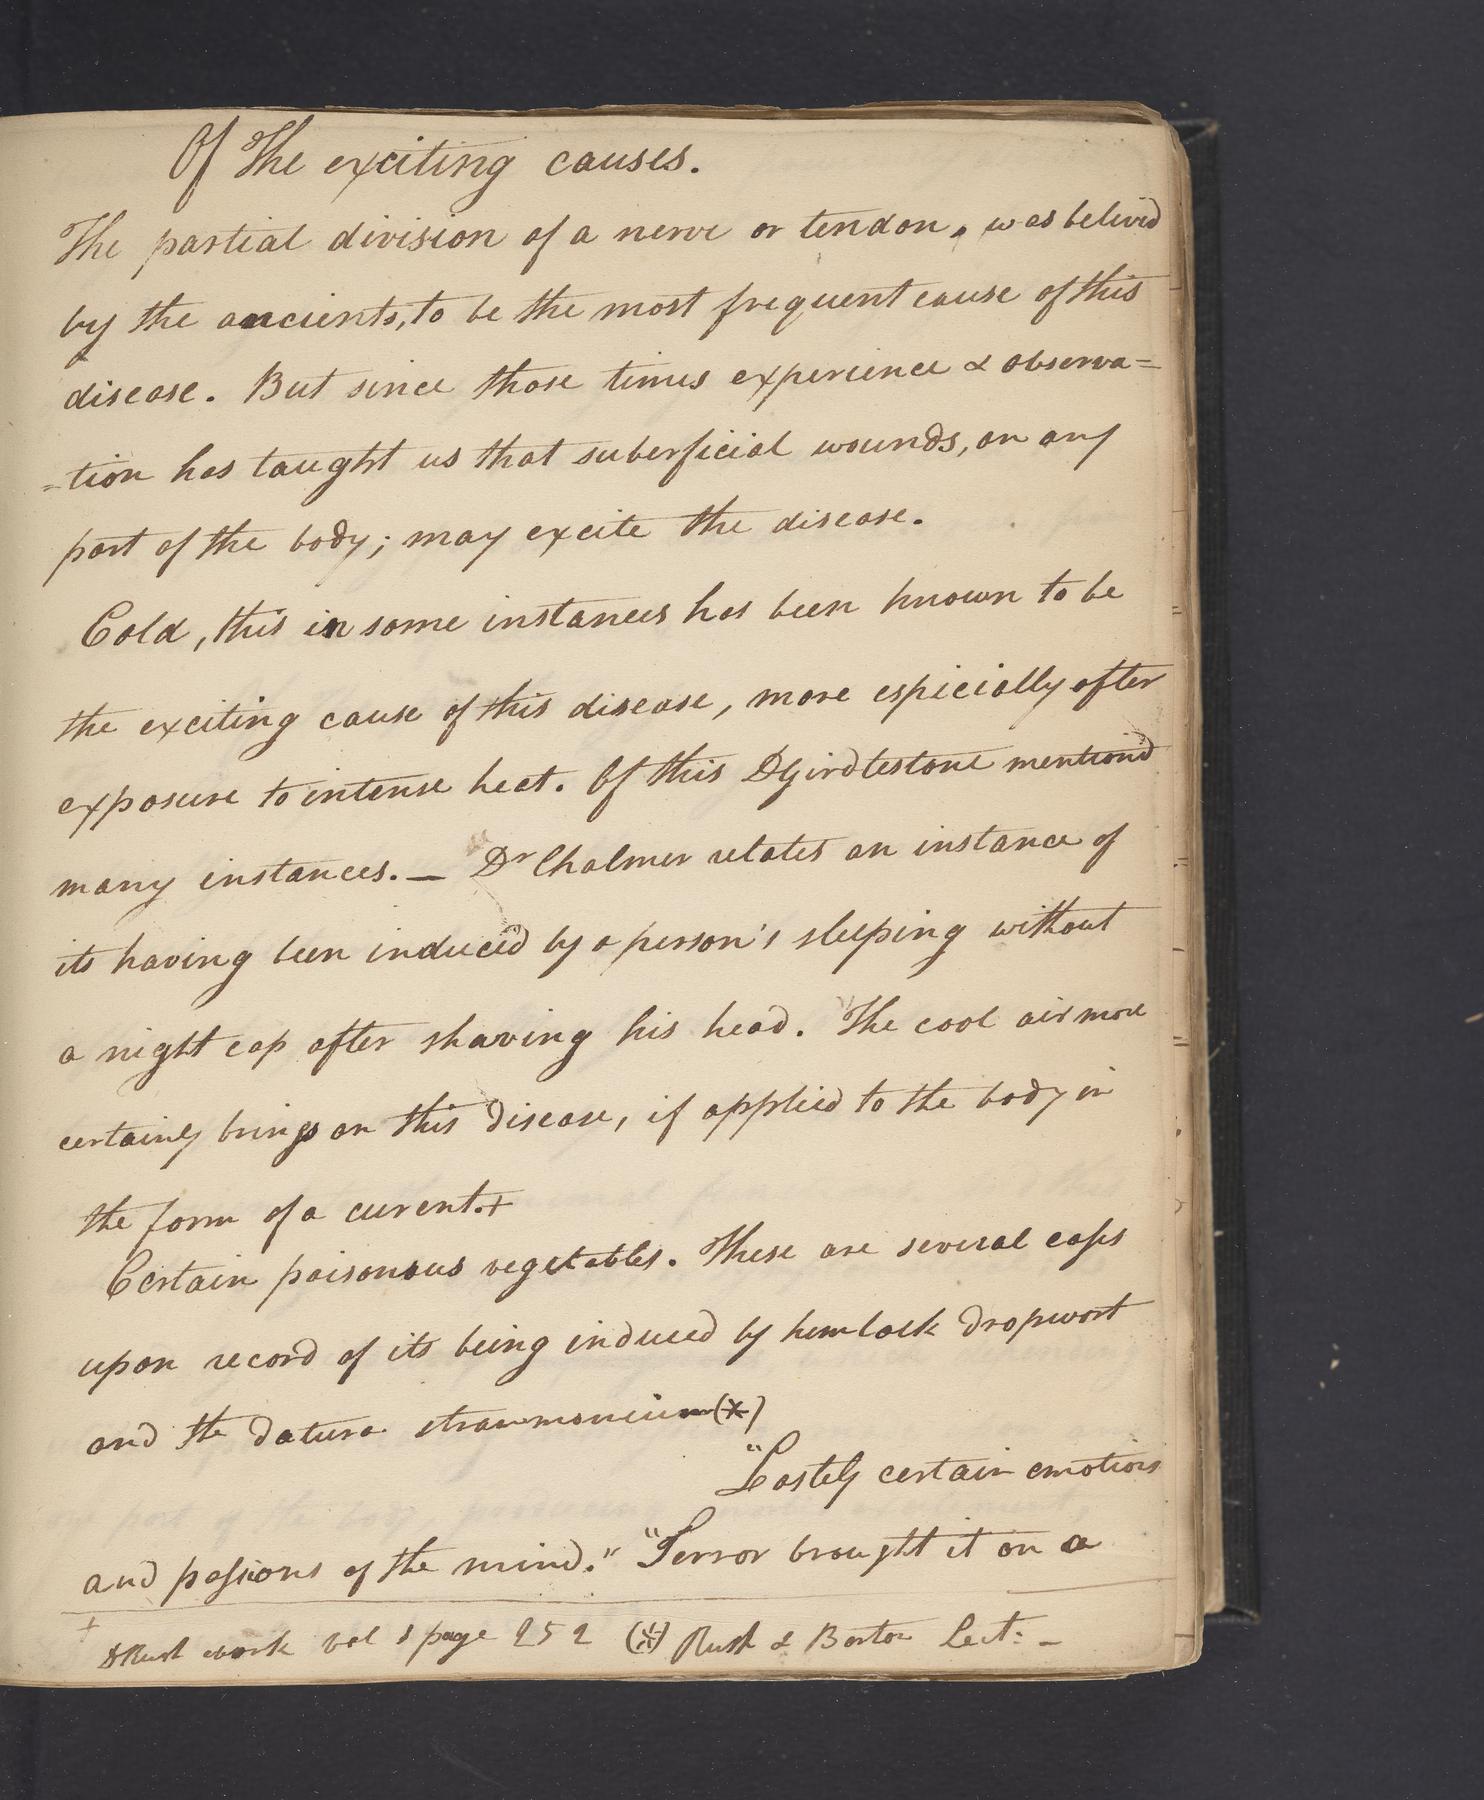 Of The exciting causes.
The partial division of a nerve or tendon, was believ'd
by the ancients, to be the most frequent cause of this
disease. But since those times experience & observa=
=tion has taught us that suberficial wounds, on any
part of the body; may excite the disease.
Cold, this in some instances has been known to be
the exciting cause of this disease, more espicially after
exposure to intense heat. Of this Dr Girdlestone mention'd
many instances. — Dr Chalmer relates an instance of
its having been induced by a person's sleeping without
a night cap after shaving his head. The cool air more
certainly brings on this disease, if applied to the body in
the form of a curent.+
Certain poisonous vegetables. These are several cases
upon record of its being induced by hemlock dropwort
and the datura strammonium (*)
"Lastely certain emotions
and passions of the mind." "Terror brought it on a
+ Dr Rush work vol 1 page 252 (*) Rush & Barton Lect: -